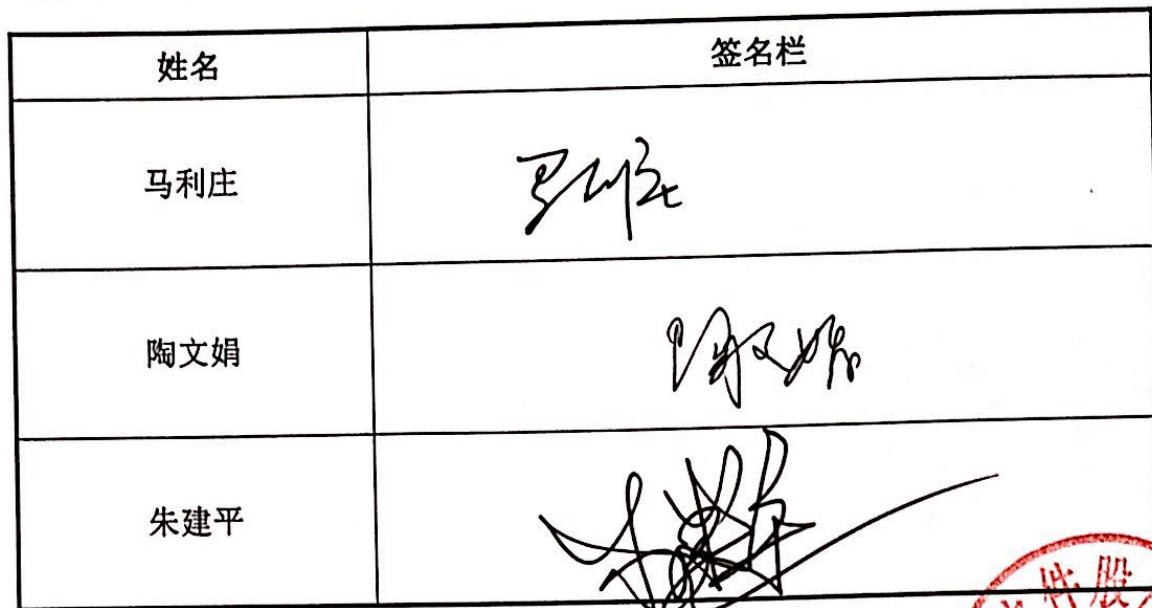 姓名 签名栏
马利庄 马利庄
陶文娟 陶文娟
朱建平
件股